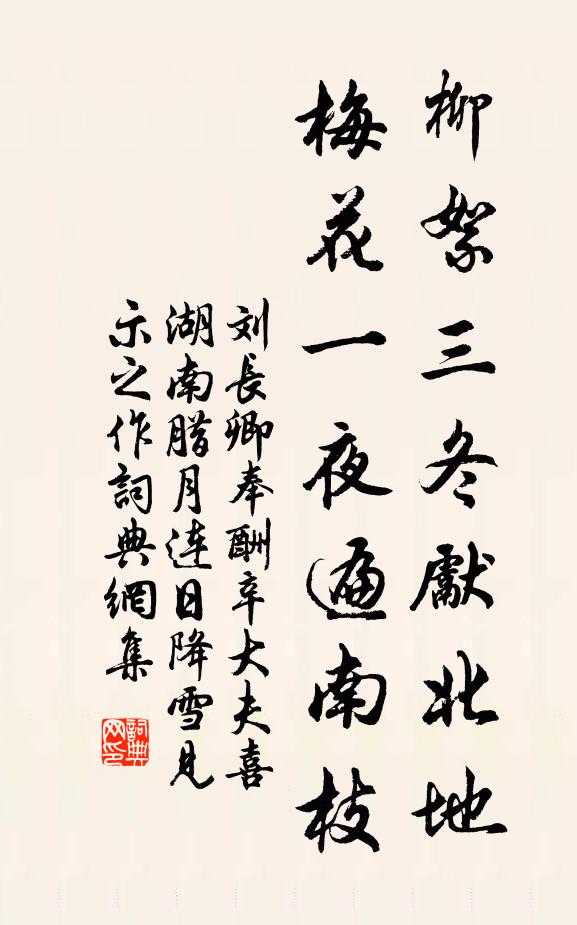 柳絮三冬獻北地
梅花一夜遍南枝
刘長卿奉酬辛大夫喜
湖南腊月连日降雪見
示之作詞典網集
詞典网印